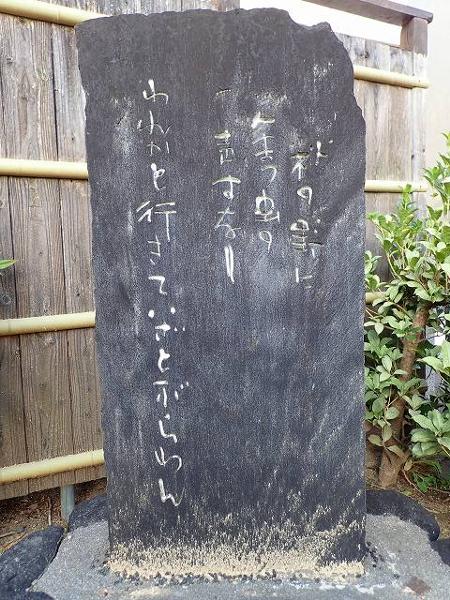 秋の野に
人まつ虫の
声すなり
われかと行きていざとぶらわん